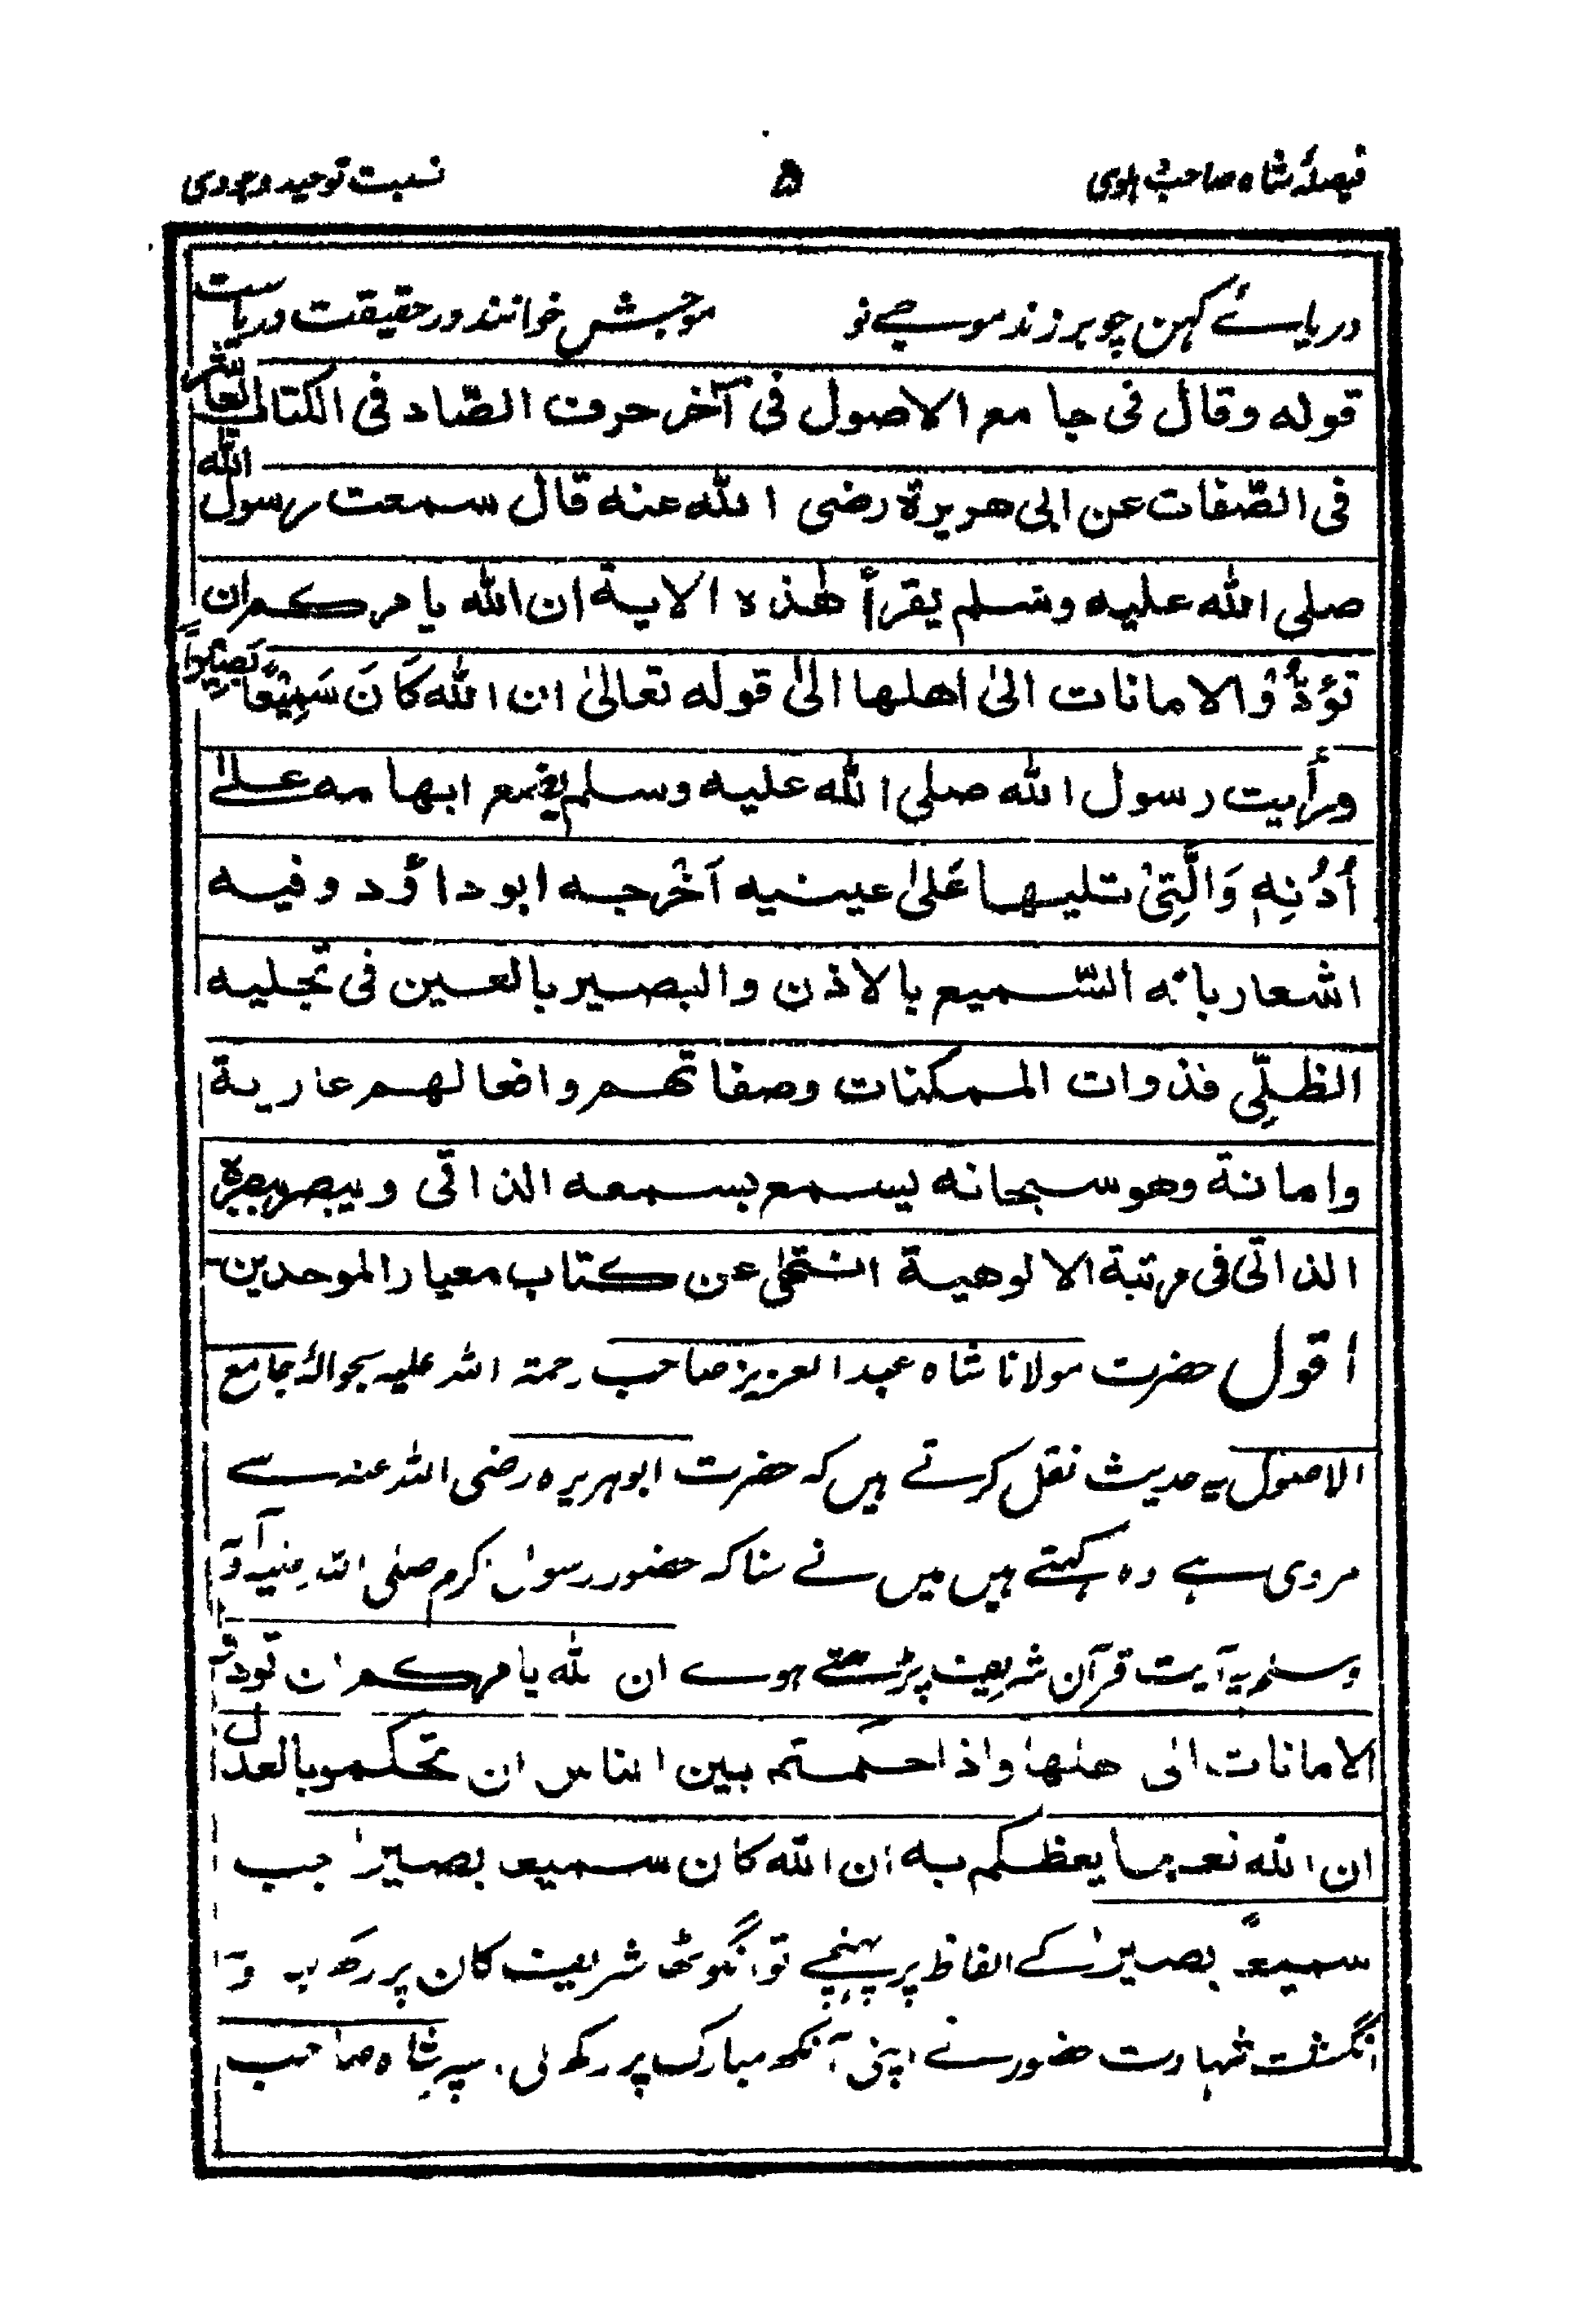 فیصلۂ شاہ صاحب دہلوی ۵ نسبت توحید وجودی
دریائے کہن چو برزند موجے نو موجش خوانند و درحقیقت دریاست
قوله وقال فی جامع الاصول فی آخر حرف الصّاد فی الکتاب العاشر
فی الصّفات عن ابی هریرة رضی الله عنه قال سمعت رسول الله
صلی الله علیه وسلم یقرأ هٰذه الایة ان الله یامرکم ان
تؤدّوا الامانات الیٰ اهلها الیٰ قوله تعالیٰ ان الله کَانَ سَمِیْعًا بَصِیْراً
ورأیت رسول الله صلی الله علیه وسلم یضع ابهامه علیٰ
اُذُنِهٖ وَالَّتِیْ تلیها عَلیٰ عینیه اَخْرجه ابوداؤد وفیه
اشعار بانه السّمیع بالاذن والبصیر بالعین فی تجلیه
الظلِّی فذوات الممکنات وصفاتهم وافعالهم عاریة
وامانة وهو سبحانه یسمع بسمعه الذاتی ویبصر ببصره
الذاتی فی مرتبة الالوهیة انتهیٰ عن کتاب معیار الموحدین
اقول حضرت مولانا شاہ عبدالعزیز صاحب رحمتہ اللہ علیہ بحوالۂ جامع
الاصول یہ حدیث نقل کرتے ہیں کہ حضرت ابوہریرہ رضی اللہ عنہ سے
مروی ہے وہ کہتے ہیں میں نے سنا کہ حضور رسول اکرم صلی اللہ علیہ وآلہ
وسلم یہ آیت قرآن شریف پڑھتے ہوے ان الله یامرکم ان تودّوا
الامانات الی اهلها واذا حکمتم بین الناس ان تحکموبالعدل
ان الله نعما یعظکم به ان الله کان سمیعا بصیرا جب
سمیعاً بصیراً کے الفاظ پر پہنچے تو انگوٹھا شریف کان پر رکھ لیا اور
انگشت شہادت حضور نے اپنی آنکھ مبارک پر رکھ لی، پس شاہ صاحب